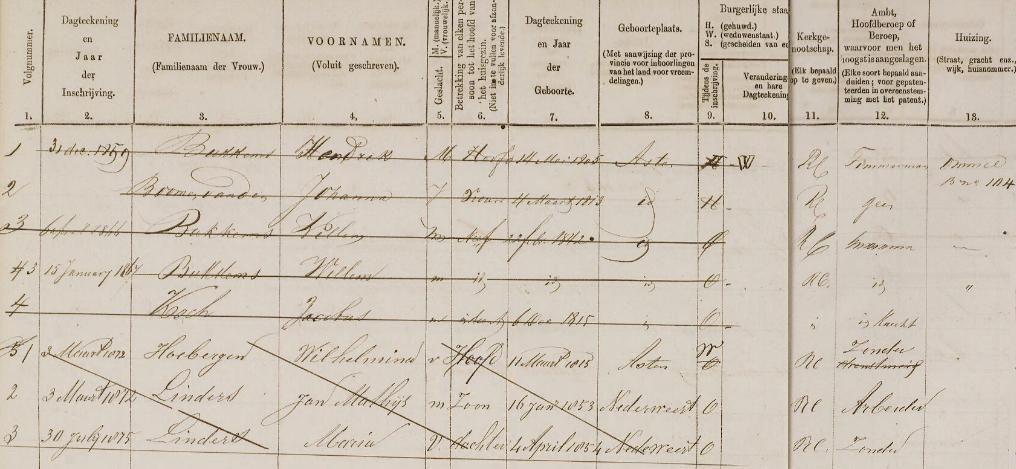 Volgnummer. Dagteekening en Jaar der Inschrijving. FAMILIENAAM. (Familienaam der Vrouw.) VOORNAMEN. (Voluit geschreven). Geslacht. M. (mannelijk.) V. (vrouwelijk.) Betrekking van elken persoon tot het hoofd van het huisgezin. Dagteekening en Jaar der Geboorte. Geboorteplaats. (Met aanwijzing der provincie voor inboorlingen van het land voor vreemdelingen.) Burgerlijke stan
H. (gehuwd.)
W. (weduwenstaat.)
S. (gescheiden van ec
Tijdens de inschrijving. Verandering en hare Dagteekening Kerkgenootschap. (Elk bepaald op te geven.) Ambt, Hoofdberoep of Beroep, waarvoor men het hoogst is aangeslagen. (Elke soort bepaald aanduiden; voor gepatenteerden in overeenstemming met het patent.) Huizing. (Straat, gracht enz., wijk, huisnommer.)
1. 2. 3. 4. 5. 6. 7. 8. 9. 10. 11. 12. 13.
1 31 dec. 1859 Bukkems Hendrik M Hoofd 14 Mei 1805 Asten H W RC Timmerman Ommel
2 Johanna V Vrouw 4 Maart 1813 id H R geen B no 104
3 Bukkems Willem Neef 1842 id O RC
4 3 15 January 1867 Bukkems Willem m id id id O RC. id "
4 Koch Jacobus m knecht 6 Dec 1815 O Knecht
5 1 2 Maart 1872 Hoebergen Wilhelmina v Hoofd 11 Maart 1818 Asten W O RC Zonder
2 3 Maart 1872 Linders Jan Mathijs m Zoon 16 Jan 1853 Nederweert O RC Arbeider
3 30 July 1875 Linders Maria V. dochter 4 April 1854 Nederweert O RC. Zonder